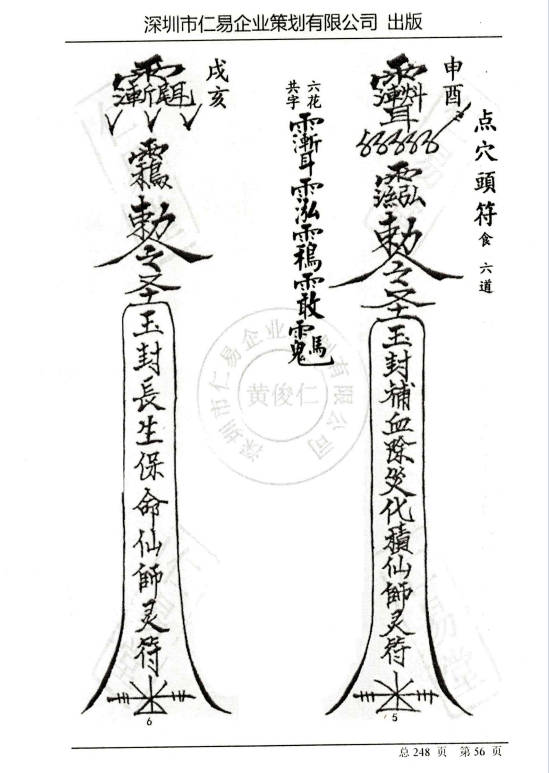 深圳市仁易企业策划有限公司 出版
点穴頭符食 六道
申酉
勅令圣
玉封補血除災化積仙師灵符
5
六花
共字
戌亥
勅令圣
玉封長生保命仙師灵符
6
深圳市仁易企业策划有限公司
黄俊仁
总 248 页 第 56 页